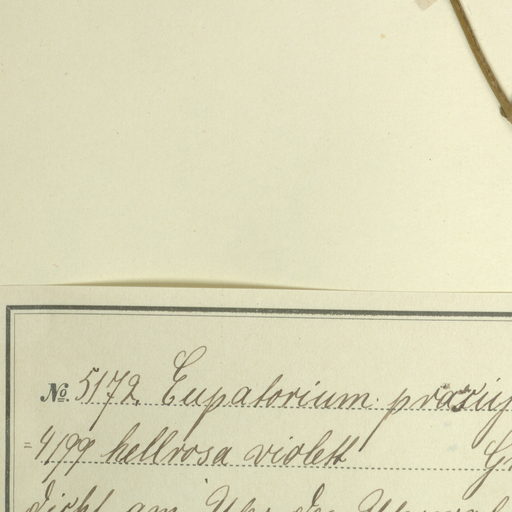 № 5172. Eupatorium
= 4199 hellrosa violett
dicht am Ufer des